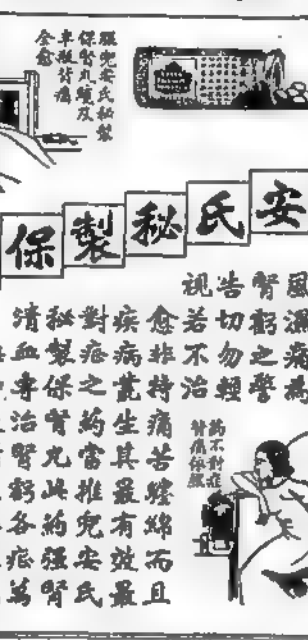 服兜安氏秘製
保腎丸瞬及
半載背痛
全愈
安氏秘製保
風濕痛為
腎虧之警
告切勿輕
視若不治
愈非特痛苦纏綿而且
疾病叢生其最有效最
對症之药當推兜安氏
秘製保腎丸此药强腎
清血專治腎虧各症萬
药不對症
背痛依然